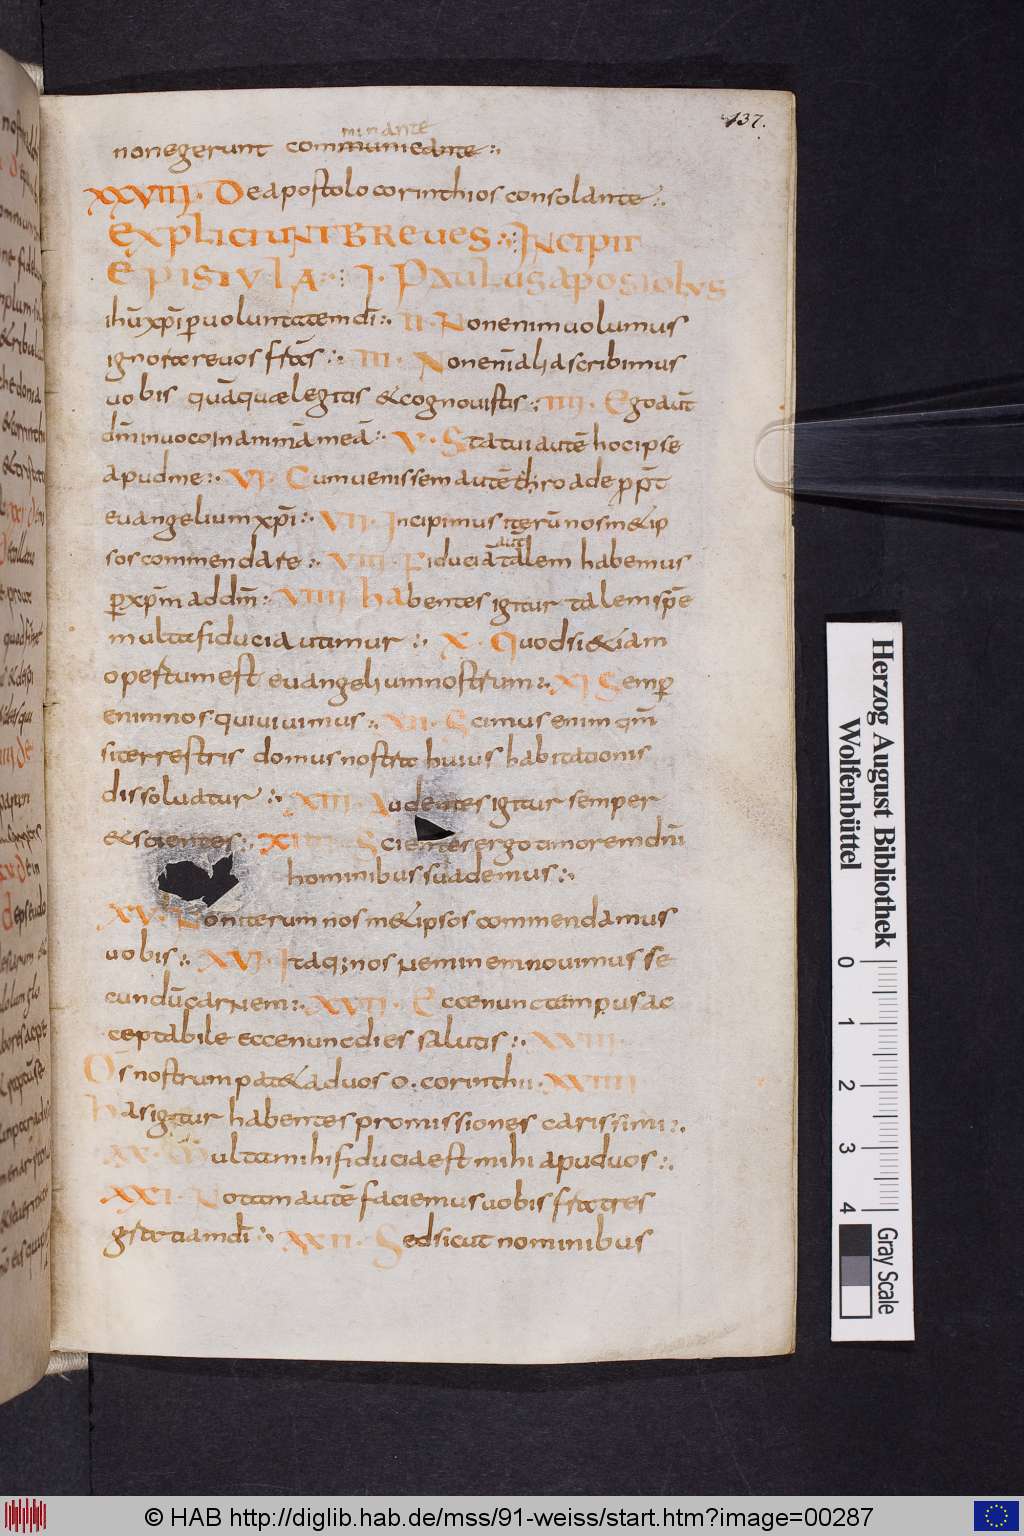 137.
minante
non egerunt communicante :.
XXVIIJ. De apostolo corinthios consolante :.
EXPLICIUNT BREUES :. INCIPIT
EPISTULA :. I. PAULUS APOSTOLUS
ihu xpi p uoluntatem dī :. II. Non enim uolumus
ignorare uos frās :. III. Non enī alia scribimus
uobis quā quae legitis & cognouistis :. IIII. Ego aūt
dm̄ inuoco in animā meā :. V. Statui autē hoc ipse
apud me :. VI. Cum uenissem autē
euangelium xpī :. VII. Incipimus iterū nosm&ip
aūt
sos commendare :. VIII. Fiduciā talem habemus
p xpm̄ ad dm̄ : VIIII. Habentes igitur talem spē
multa fiducia utimur :. X. Quod si &iam
opertum est euangelium nostrum :. XI Semp
enim nos qui uiuimus :. XII. Scimus enim qm̄
si terrestris domus nostra huius habitationis
dissoluatur :. XIII. Audentes igitur semper
& scientes :. XI Scientes ergo timorem dnī
hominibus suademus :.
XV. Non iterum nosm&ipsos commendamus
uobis :. XVI. Itaq; nos neminem nouimus se
cundū carnem :. XVII. Ecce nunc tempus ac
ceptabile ecce nunc dies salutis :. XVIII.
Os nostrum pat& ad uos o. corinthii. XVIIII
Has igitur habentes promissiones carissimi :.
XX. Multa mihi fiducia est mihi apud uos :.
XXI. Notam autē faciemus uobis fratres
gratiam dī :. XXII. Sed sicut nominibus
Herzog August Bibliothek
Wolfenbüttel
0 1 2 3 4
Gray Scale
© HAB http://diglib.hab.de/mss/91-weiss/start.htm?image=00287